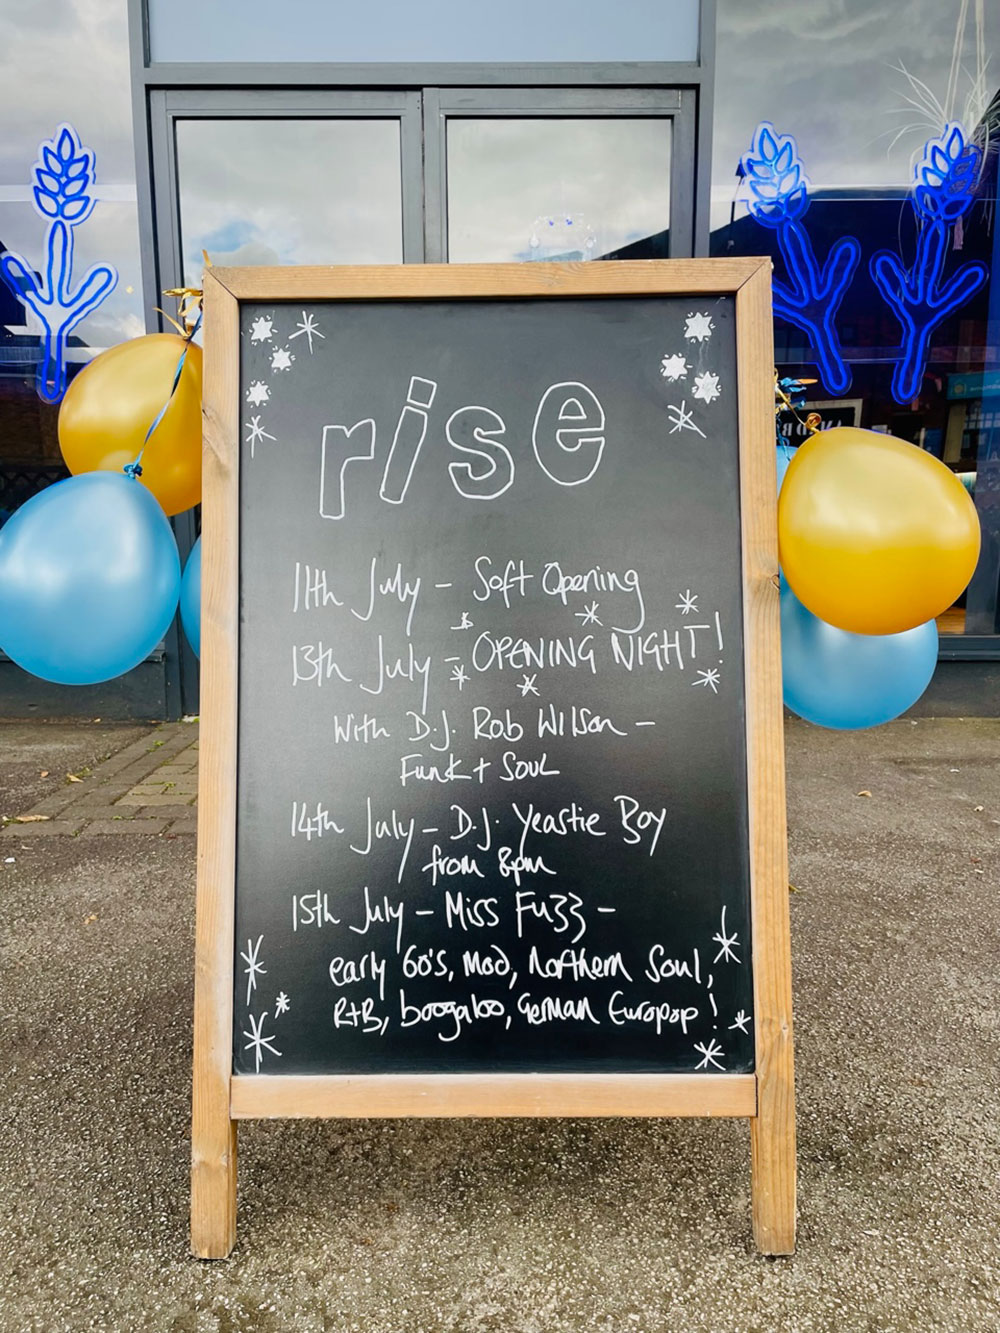 rise
11th July - Soft Opening
13th July - OPENING NIGHT!
With D.J. Rob Wilson -
Funk + Soul
14th July - D.J. Yeastie Boy
from 8pm
15th July - Miss Fuzz -
early 60's, Mod, Northern Soul,
R+B, boogaloo, German Europop!